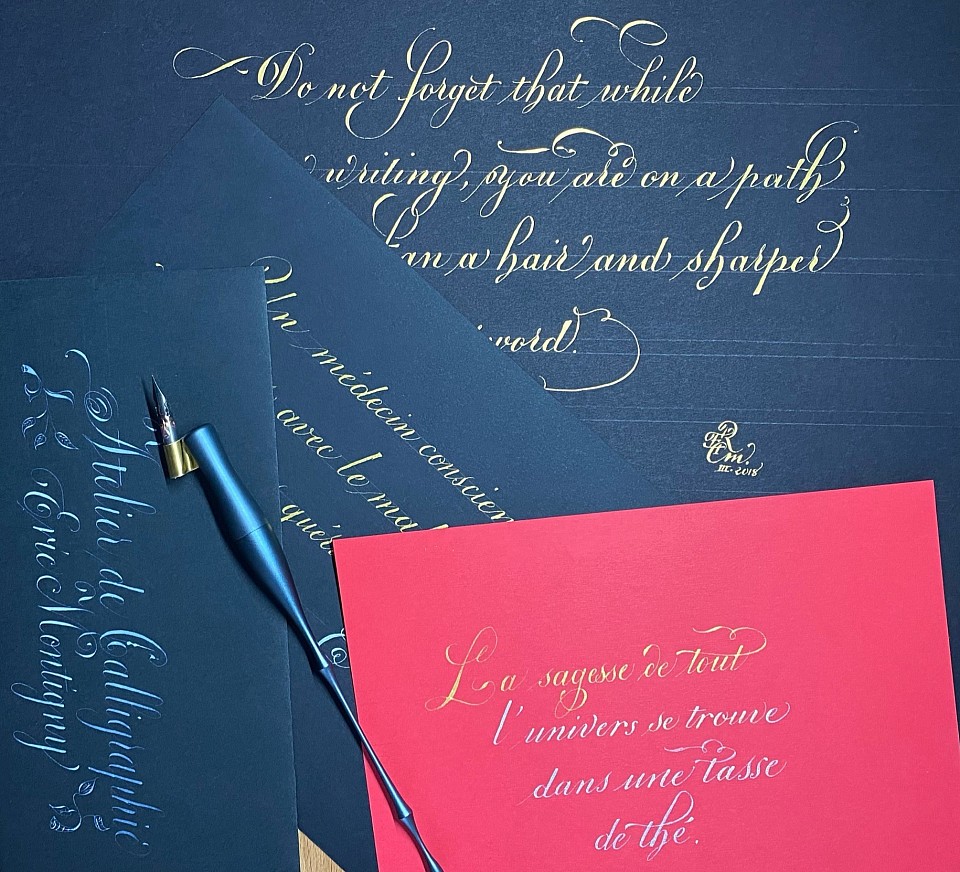 Do not forget that while
writing, you are on a path
than a hair and sharper
sword.
III. 2018
Un médecin conscien
avec le ma
quér
Atelier de Calligraphie
Eric Montigny
La sagesse de tout
l'univers se trouve
dans une tasse
de thé.